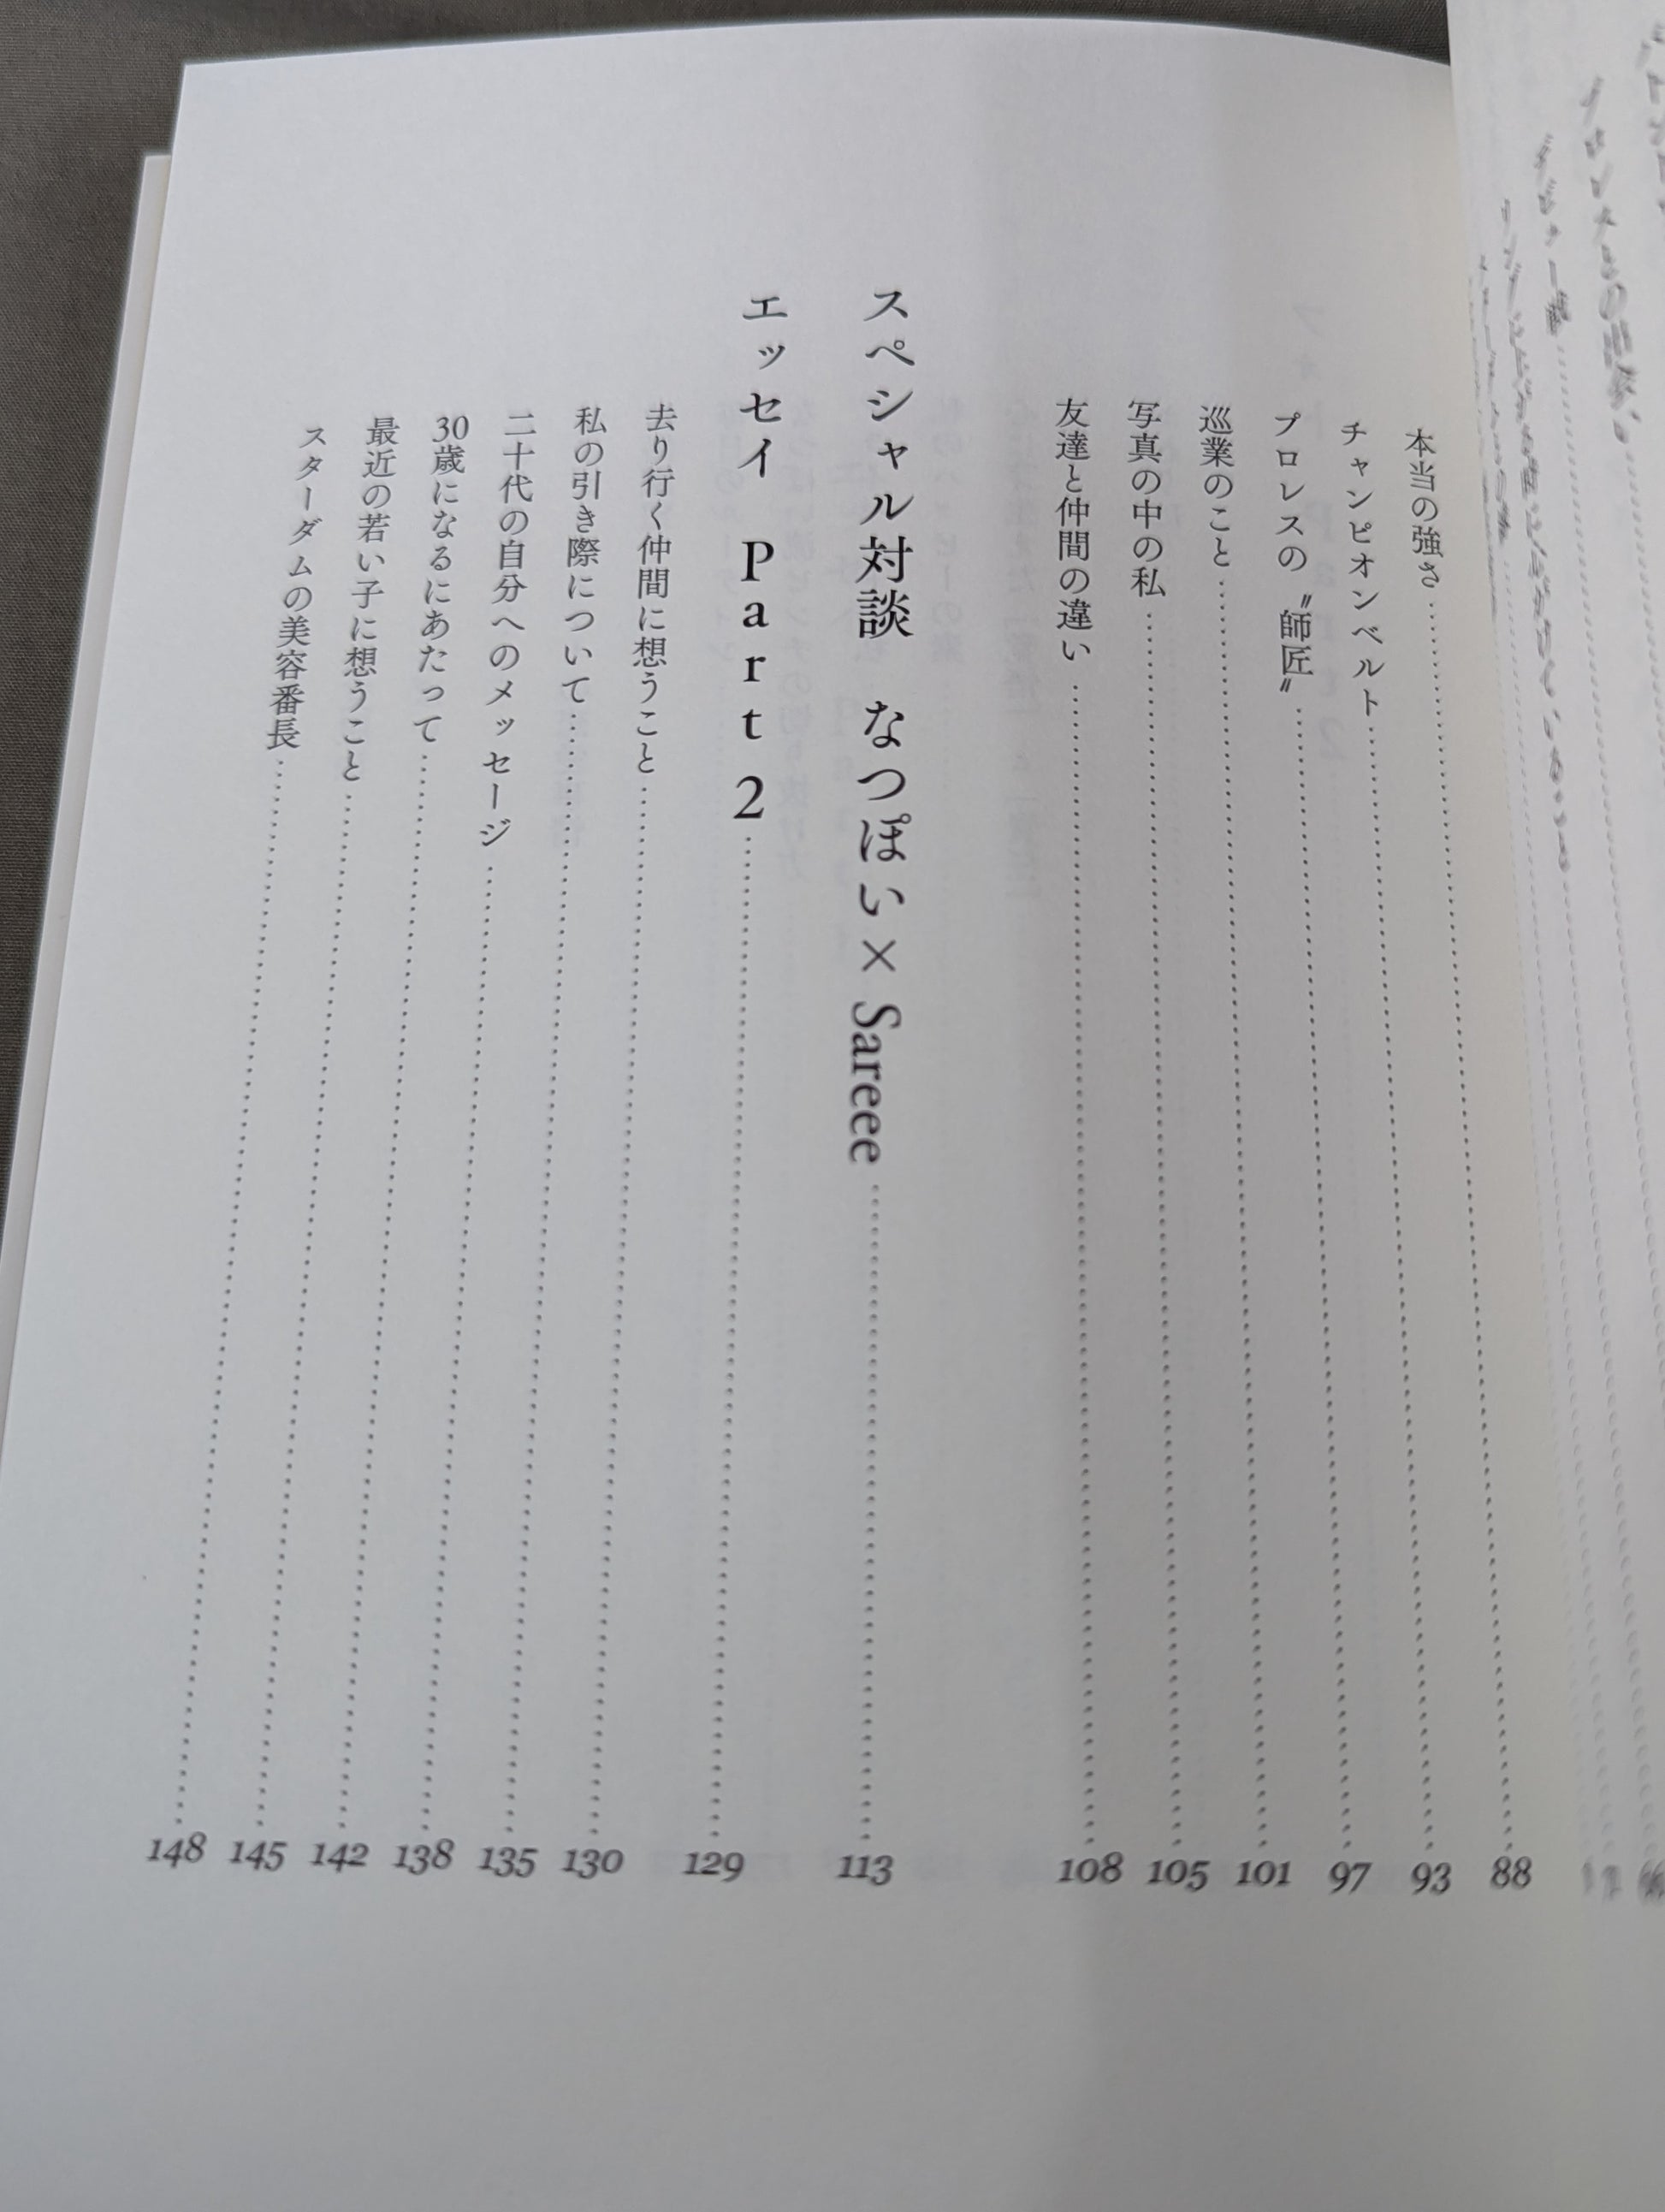 本当の強さ……88
チャンピオンベルト……93
プロレスの〝師匠〟……97
巡業のこと……101
写真の中の私……105
友達と仲間の違い……108
スペシャル対談　なつぽい×Sareee……113
エッセイ　Part 2……129
去り行く仲間に想うこと……130
私の引き際について……135
二十代の自分へのメッセージ……138
30歳になるにあたって……142
最近の若い子に想うこと……145
スターダムの美容番長……148